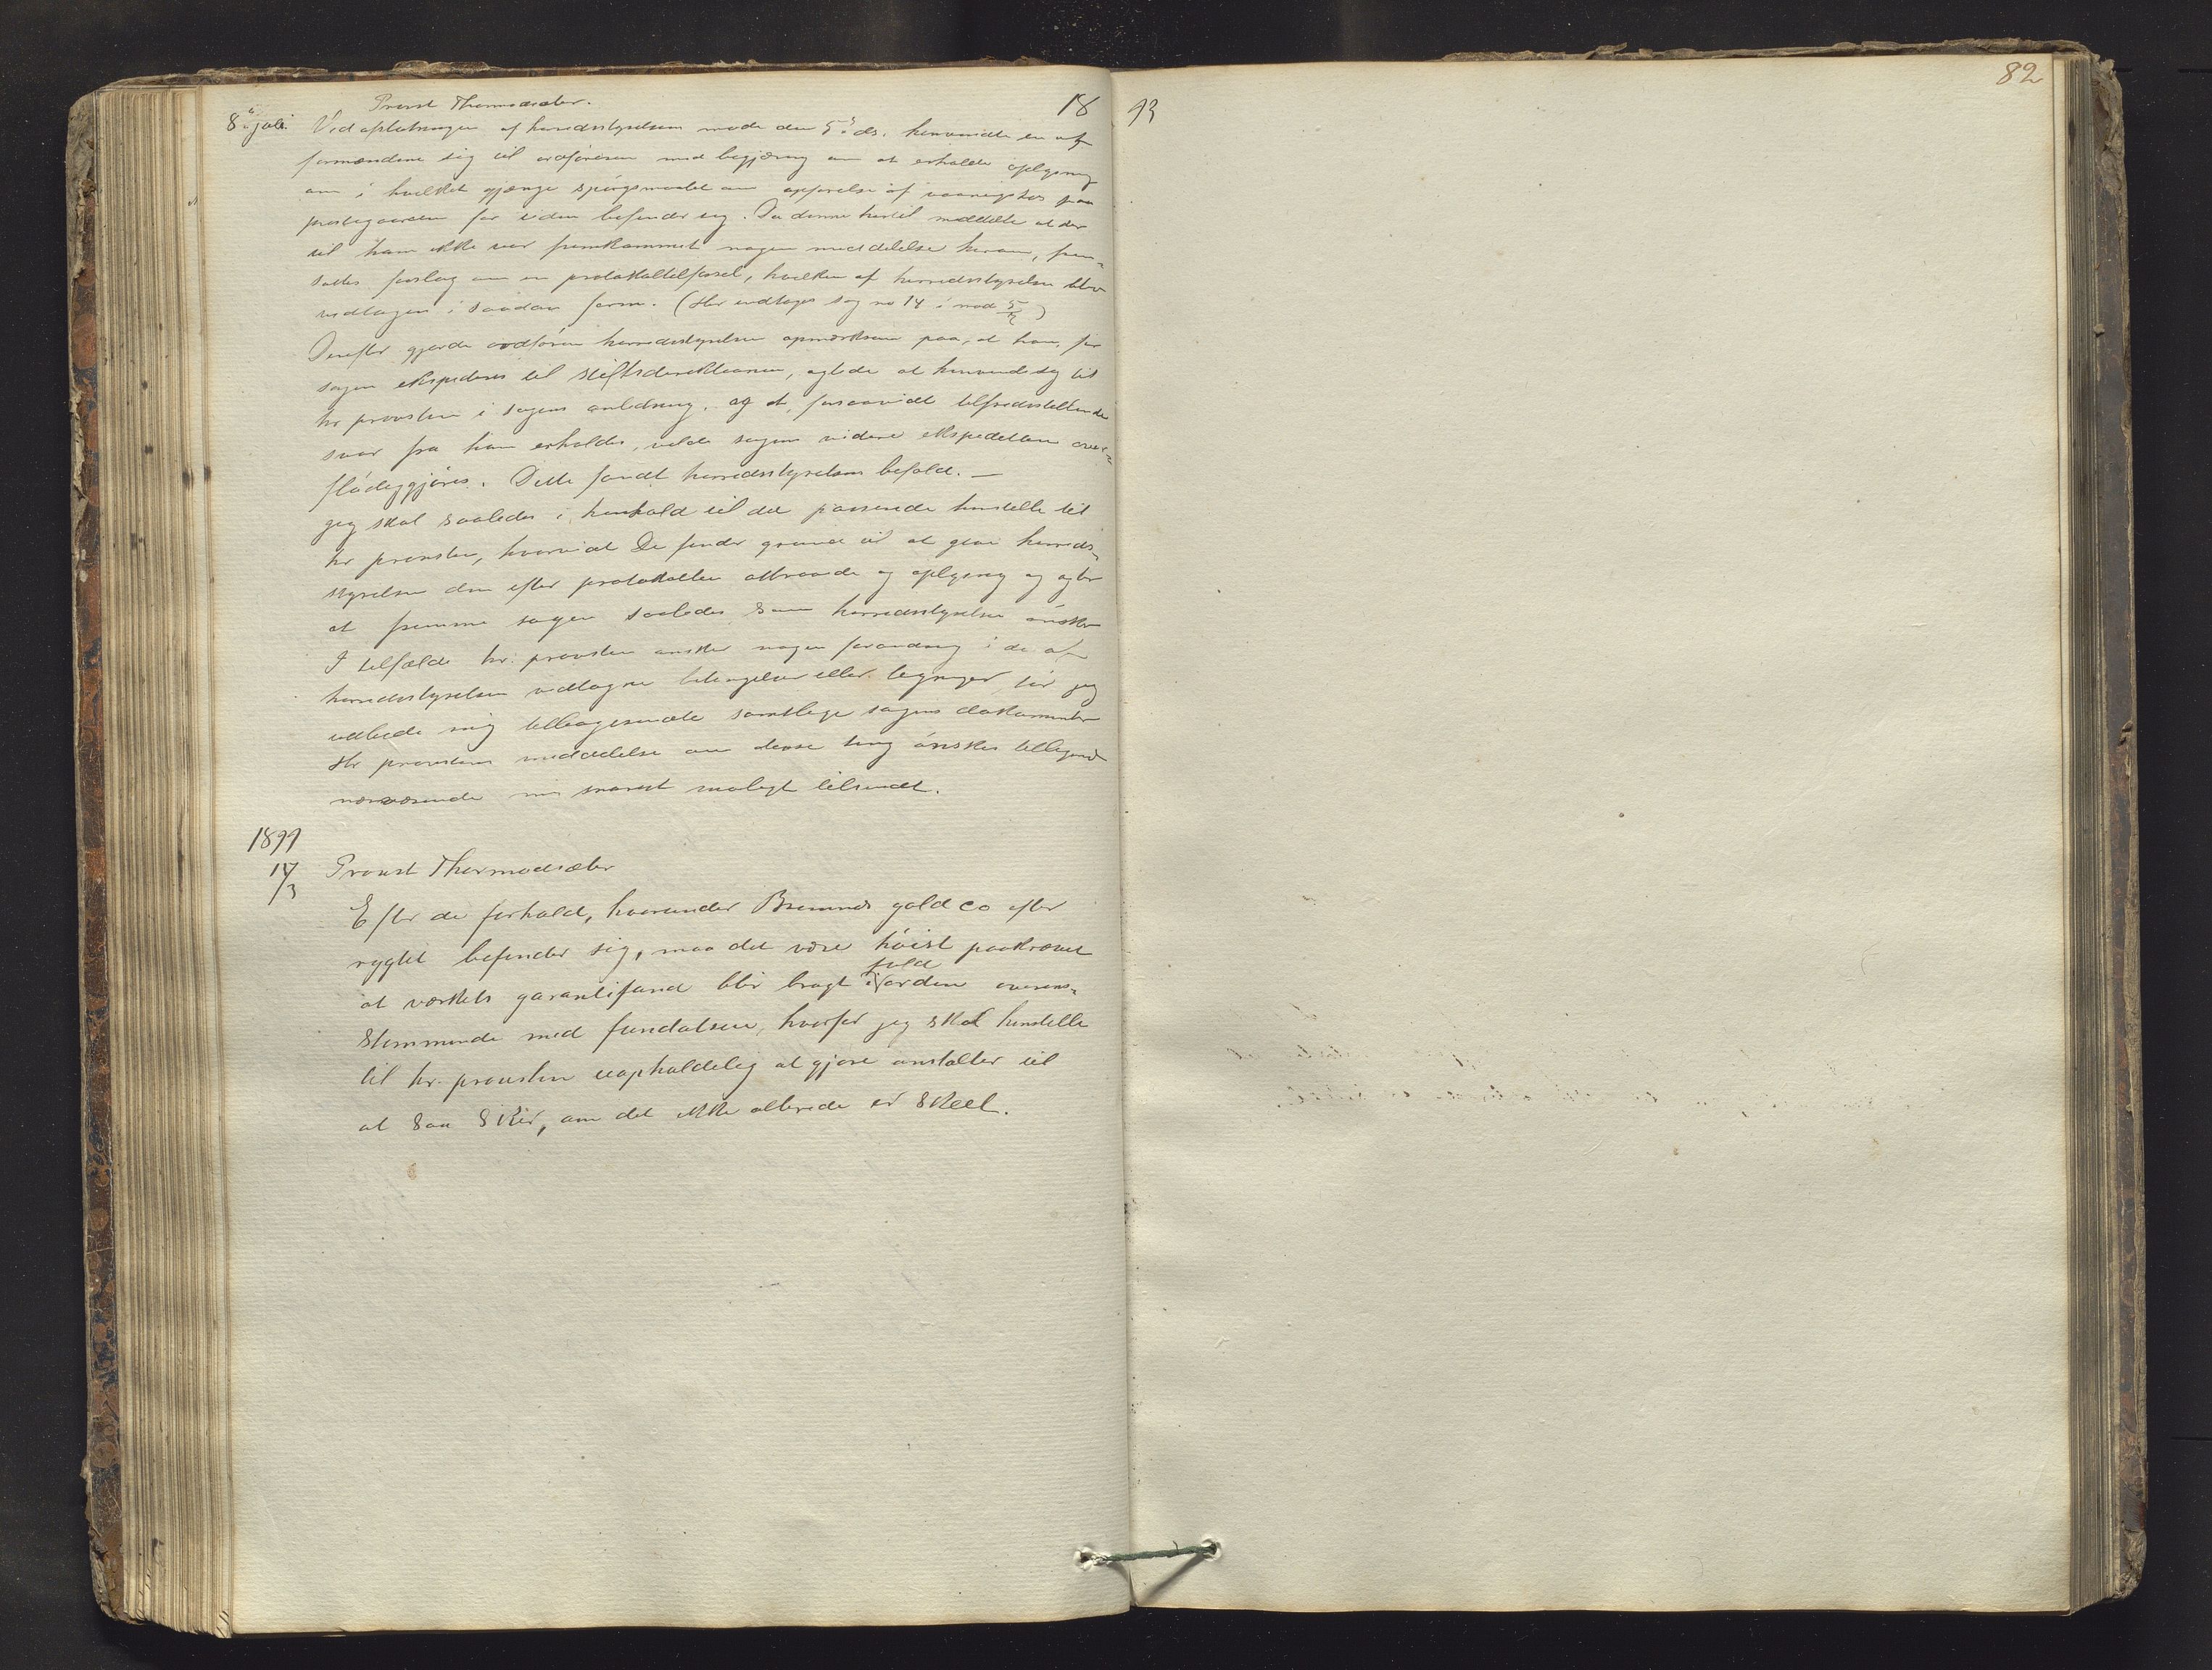 18 93
82
Provst Thormodsæter.
8de juli. Ved afslutningen af herredsstyrelsens møde den 5te ds. henvendte en af
formændene sig til ordføreren med begjæring om at erholde oplysning
om i hvilket gjænge spørgsmaalet om opførelse af vaaningshus paa
prestegaarden for tiden befinder sig. Da denne hertil meddelte at der
til ham ikke var fremkommet nogen meddelelse herom, frem-
sattes forslag om en protokoltilførsel, hvilken af herredsstyrelsen blev
vedtagen i saadan form. (Her indtages sag no 14 i mød 5/7)
Derefter gjorde ordføren herredsstyrelsen opmærksom paa, at han, før
sagen ekspederes til stiftsdirektionen, agtede at henvende sig til
hr provsten i sagens anledning, og at, forsaavidt tilfredsstillende
svar fra ham erholdes, vilde sagens videre ekspedition over-
flødiggjøres. Dette fandt herredsstyrelsens bifald. —
Jeg skal saaledes i henhold til det passerede henstille til
hr provsten, hvorvidt De finder grund til at give herreds-
styrelsen den efter protokollen attraaede oplysning og agter
at fremme sagen saaledes som herredsstyrelsen ønsker
I tilfælde hr. provsten ønsker nogen forandring i de af
herredsstyrelsen vedtagne betingelser eller tegninger, tør jeg
udbede mig tilbagesendt samtlige sagens dokumenter
Hr provstens meddelelse om disse ting ønskes tilligemed
nærværende mig snarest muligt tilsendt.
1899
14/3 Provst Thormodsæter
Efter de forhold, hvorunder Bremnes gold co efter
rygtet befinder sig, maa det være høist paakrævet
at verkets garantifond blir bragt i fuld orden overens-
stemmende med fundatsen, hvorfor jeg skal henstille
til hr. provsten uopholdelig at gjøre anstalter til
at saa sker, om det ikke allerede er skeet.